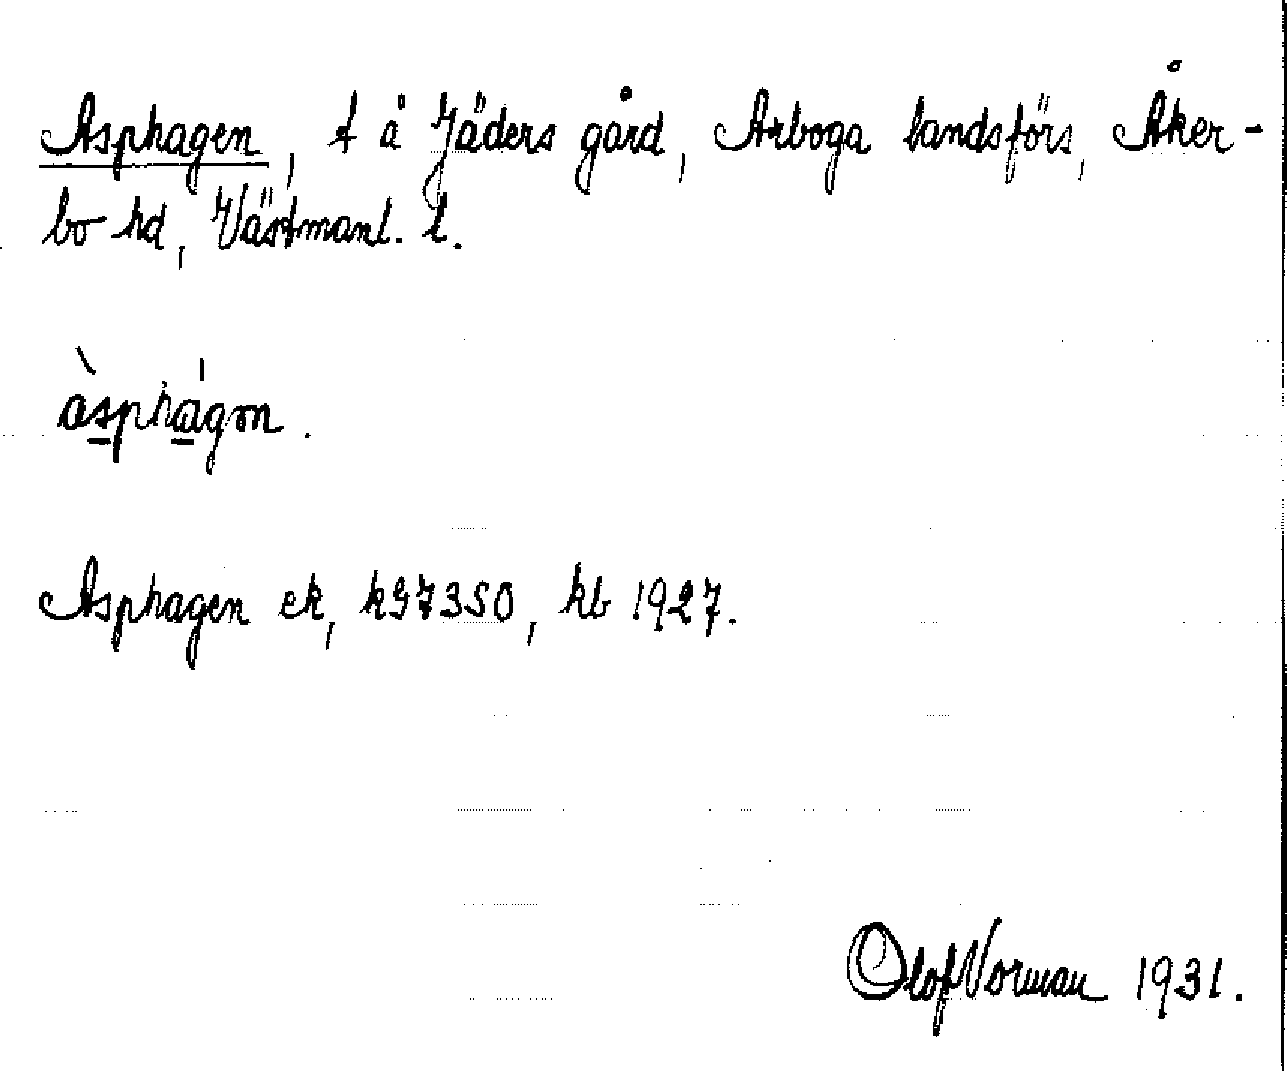 Asphagen, t å Jäders gård, Arboga landsförs, Åker-
bo hd, Västmanl. l.
àsphágən.
Asphagen ek, kg7350, kb 1927.
Olof Norman 1931.